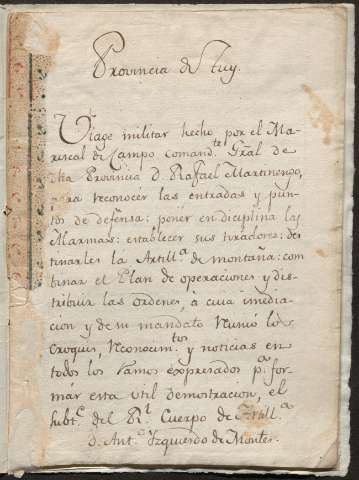 Provincia de Tuy.
Viage militar hecho por el Ma-
riscal de Campo Comand.te Gral de
dha Provincia D. Rafael Martinengo,
para reconocer las entradas y pun-
tos de defensa: poner en diciplina las
Alarmas: establecer sus tiradores: des-
tinarles la Artill.a de montaña: com-
vinar el Plan de operaciones y dis-
tribuir las ordenes, à cuia imedia-
cion y de su mandato reunió los
Croquis, reconocim.tos y noticias en
todos los ramos expresados p.a for-
már esta util demostracion, el
subt.e del R.l Cuerpo de Artill.a
D. Ant.o Izquierdo de Montes.